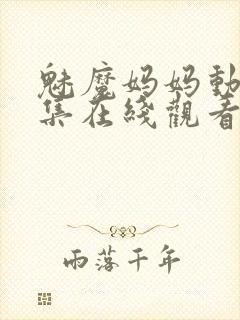 魅魔妈妈動
集在綫觀看
雨落千年